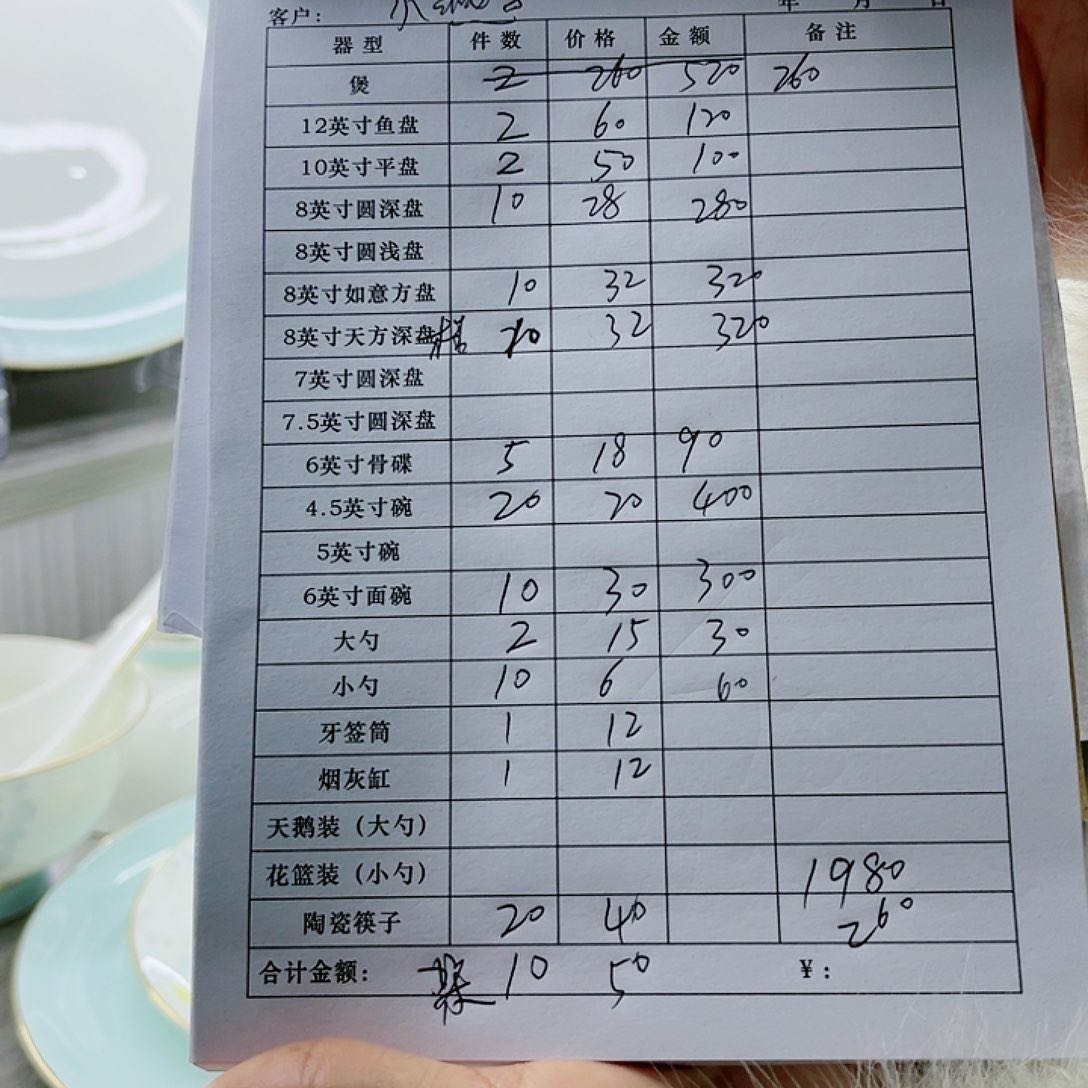 客户: 年 月 日
器型 件数 价格 金额 备注
煲 2 260 520 260
12英寸鱼盘 2 60 120
10英寸平盘 2 50 100
8英寸圆深盘 10 28 280
8英寸圆浅盘
8英寸如意方盘 10 32 320
8英寸天方深盘 10 32 320
7英寸圆深盘
7.5英寸圆深盘
6英寸骨碟 5 18 90
4.5英寸碗 20 20 400
5英寸碗
6英寸面碗 10 30 300
大勺 2 15 30
小勺 10 6 60
牙签筒 1 12
烟灰缸 1 12
天鹅装（大勺）
花篮装（小勺） 1980
陶瓷筷子 20 40 260
合计金额: 10 50 ¥: